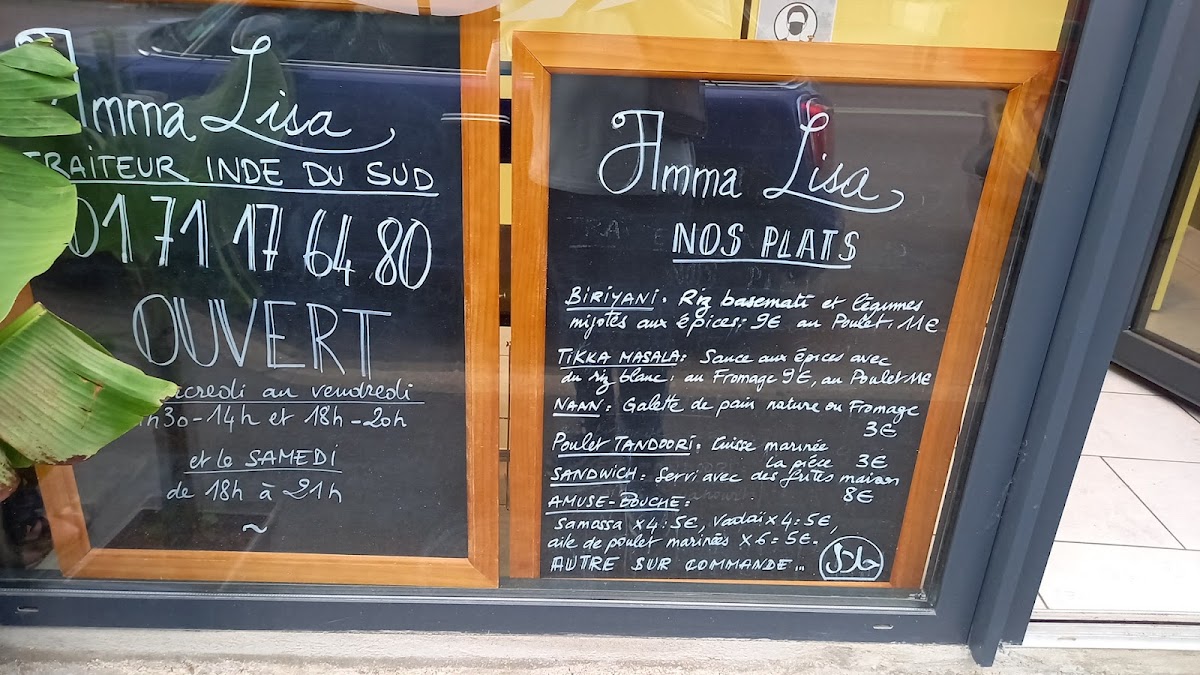 Amma Lisa
TRAITEUR INDE DU SUD
01 71 17 64 80
OUVERT
credi au vendredi
h30-14h et 18h-20h
et le SAMEDI
de 18h à 21h
~
Amma Lisa
NOS PLATS
BIRIYANI. Riz basemati et légumes
mijotés aux épices: 9€ au Poulet. 11€
TIKKA MASALA: Sauce aux épices avec
du riz blanc: au Fromage 9€, au Poulet 11€
NAAN: Galette de pain nature ou Fromage
3€
Poulet TANDOORI: Cuisse marinée
la pièce 3€
SANDWICH: Servi avec des frites maison
8€
AMUSE-BOUCHE:
Samossa x4:5€, Vadaï x4:5€,
aile de poulet marinées x6=5€.
AUTRE SUR COMMANDE...